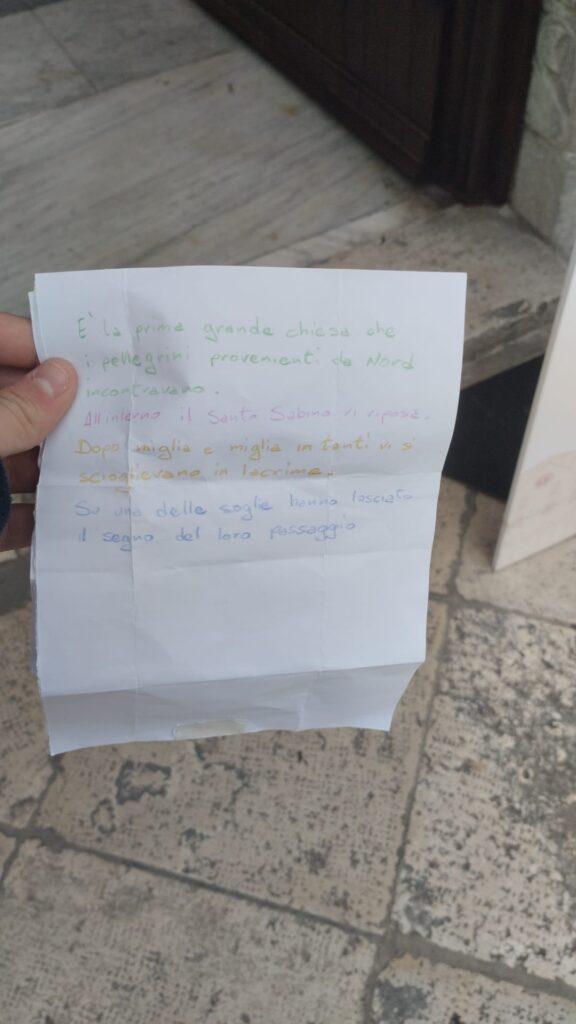 E' la prima grande chiesa che
i pellegrini provenienti da Nord
incontravano.
All'interno il Santo Sabino vi riposa.
Dopo miglia e miglia in tanti vi si
scioglievano in lacrime.
Su una delle soglie hanno lasciato
il segno del loro passaggio